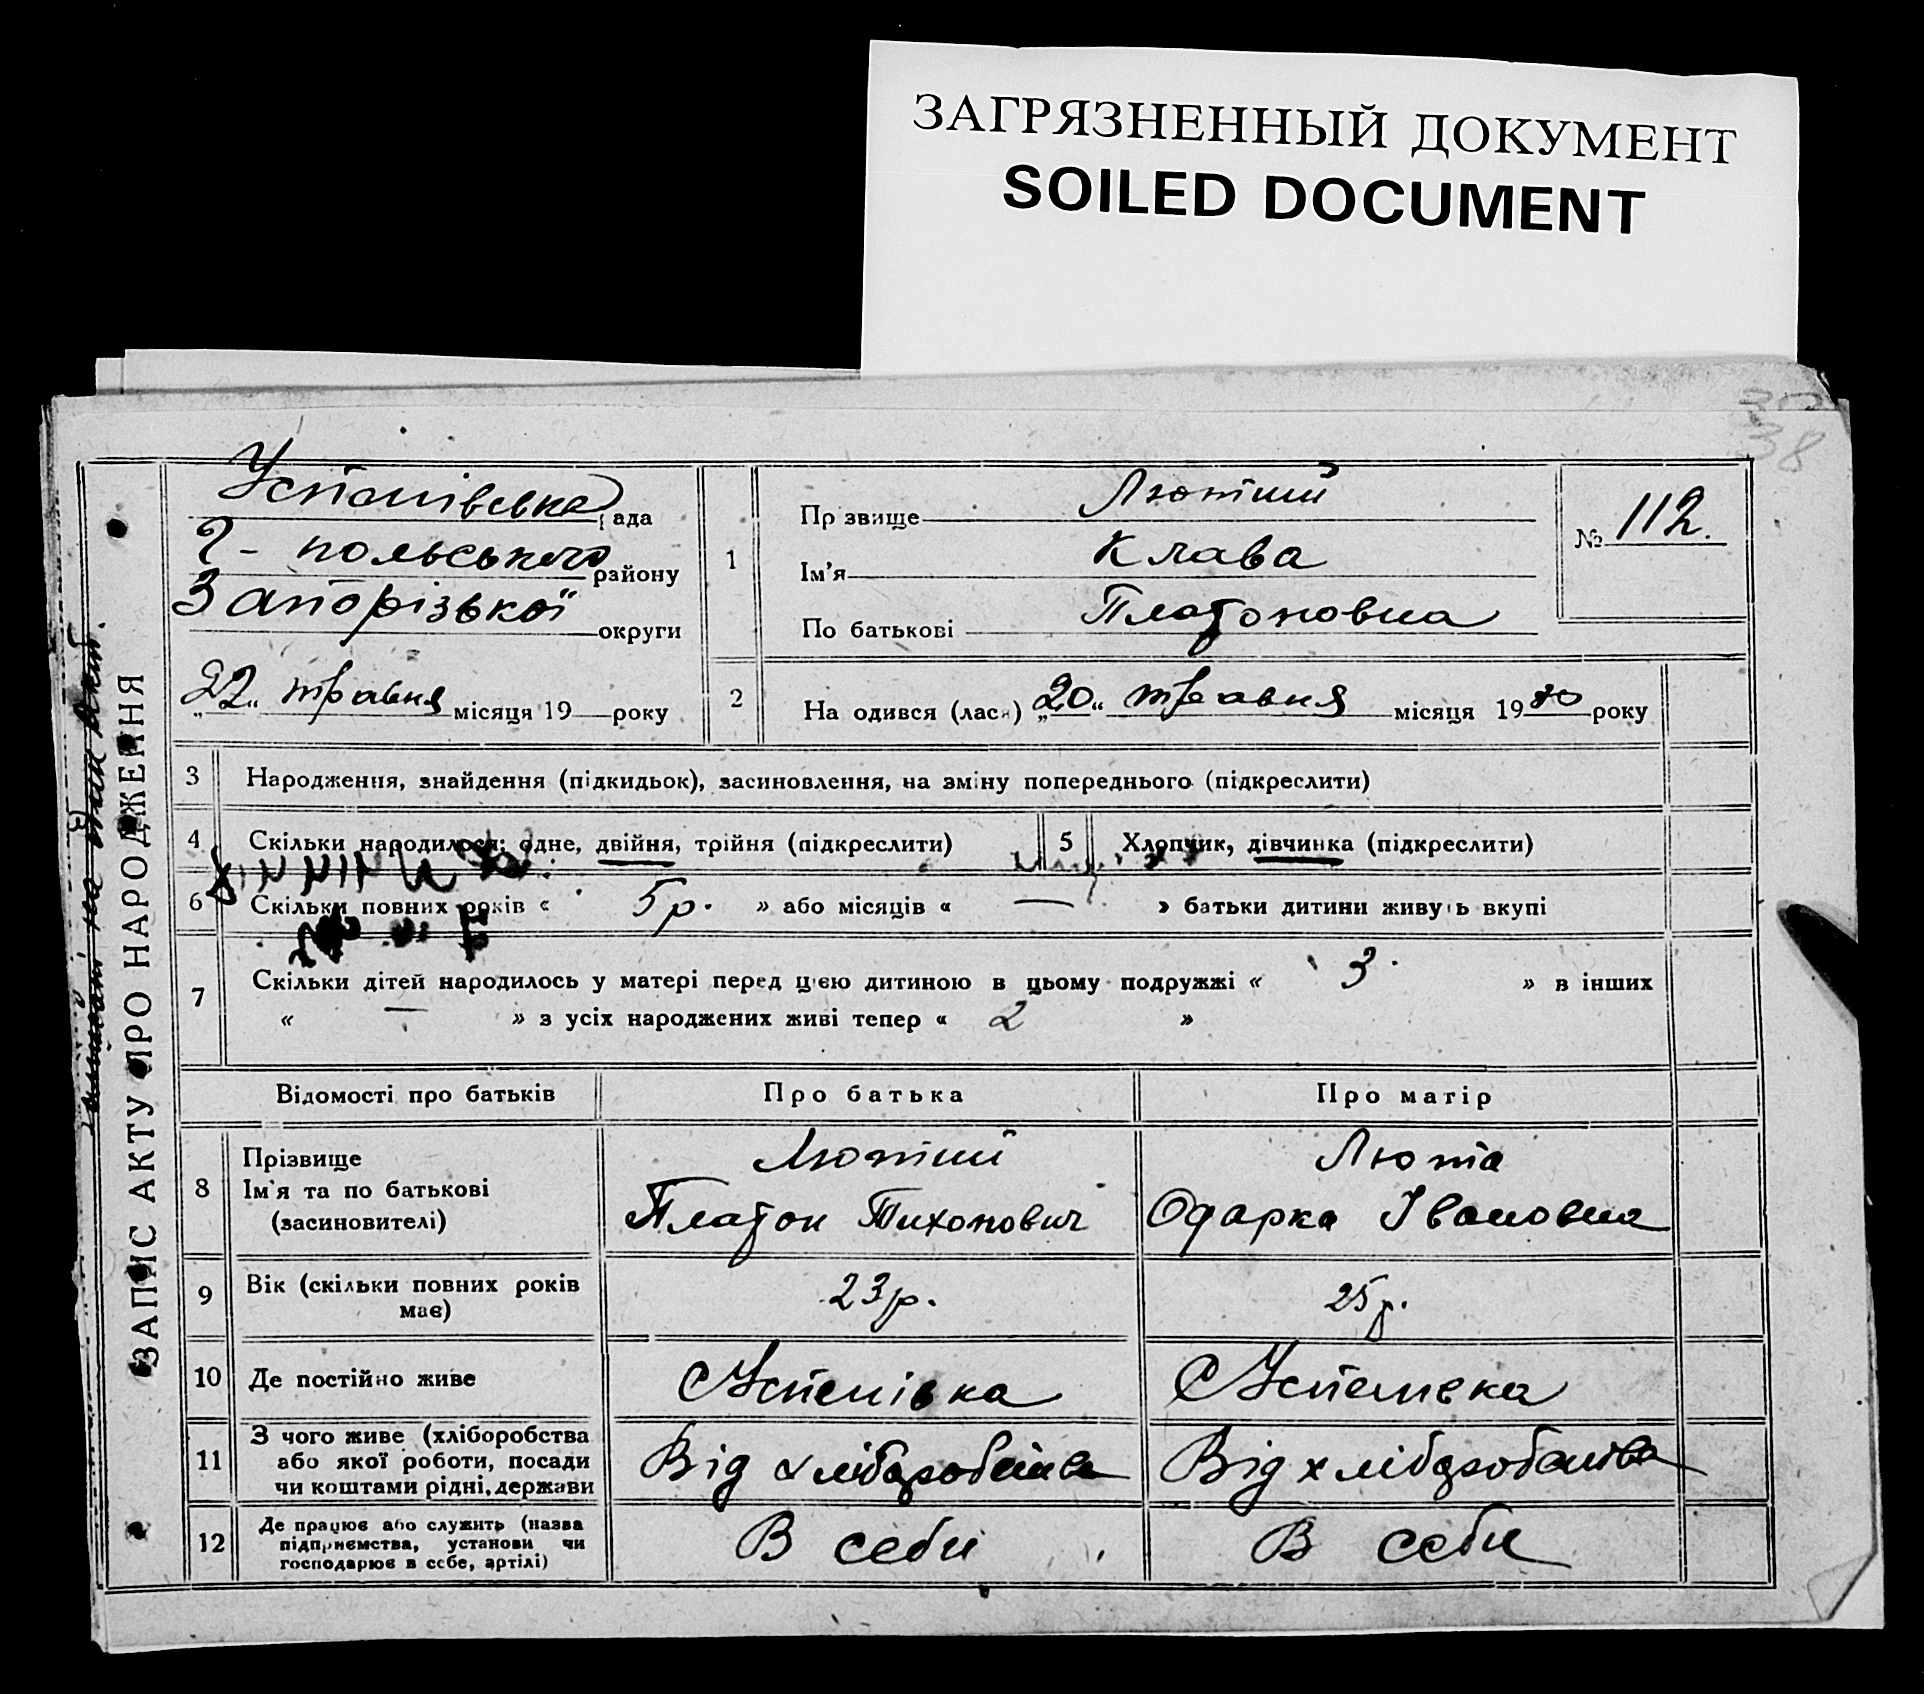 ЗАГРЯЗНЕННЫЙ ДОКУМЕНТ
SOILED DOCUMENT
38
ЗАПИС АКТУ ПРО НАРОДЖЕННЯ
Успенівська рада
Г-польського району
Запорізької округи
„22“ травня місяця 19 року
1
Прізвище Лютий
Ім'я Клава
По батькові Платоновна
№ 112.
2
На одився (лася) „20“ травня місяця 1930 року
3 Народження, знайдення (підкидьок), засиновлення, на зміну попереднього (підкреслити)
4 Скільки народилося: одне, двійня, трійня (підкреслити)
5 Хлопчик, дівчинка (підкреслити)
6 Скільки повних років « 5 р. » або місяців « — » батьки дитини живуть вкупі
7 Скільки дітей народилось у матері перед цією дитиною в цьому подружжі « 3 » в інших
« — » з усіх народжених живі тепер « 2 »
Відомості про батьків Про батька Про матір
8 Прізвище Лютий Люта
Ім'я та по батькові Платон Тихонович Одарка Івановна
(засиновителі)
9 Вік (скільки повних років 23 р. 25 р.
має)
10 Де постійно живе С Успенівка С Успенівка
11 З чого живе (хліборобства
або якої роботи, посади Від хліборобства Від хліборобства
чи коштами рідні, держави
12 Де працює або служить (назва
підприємства, установи чи В себи В себи
господарює в себе, артілі)